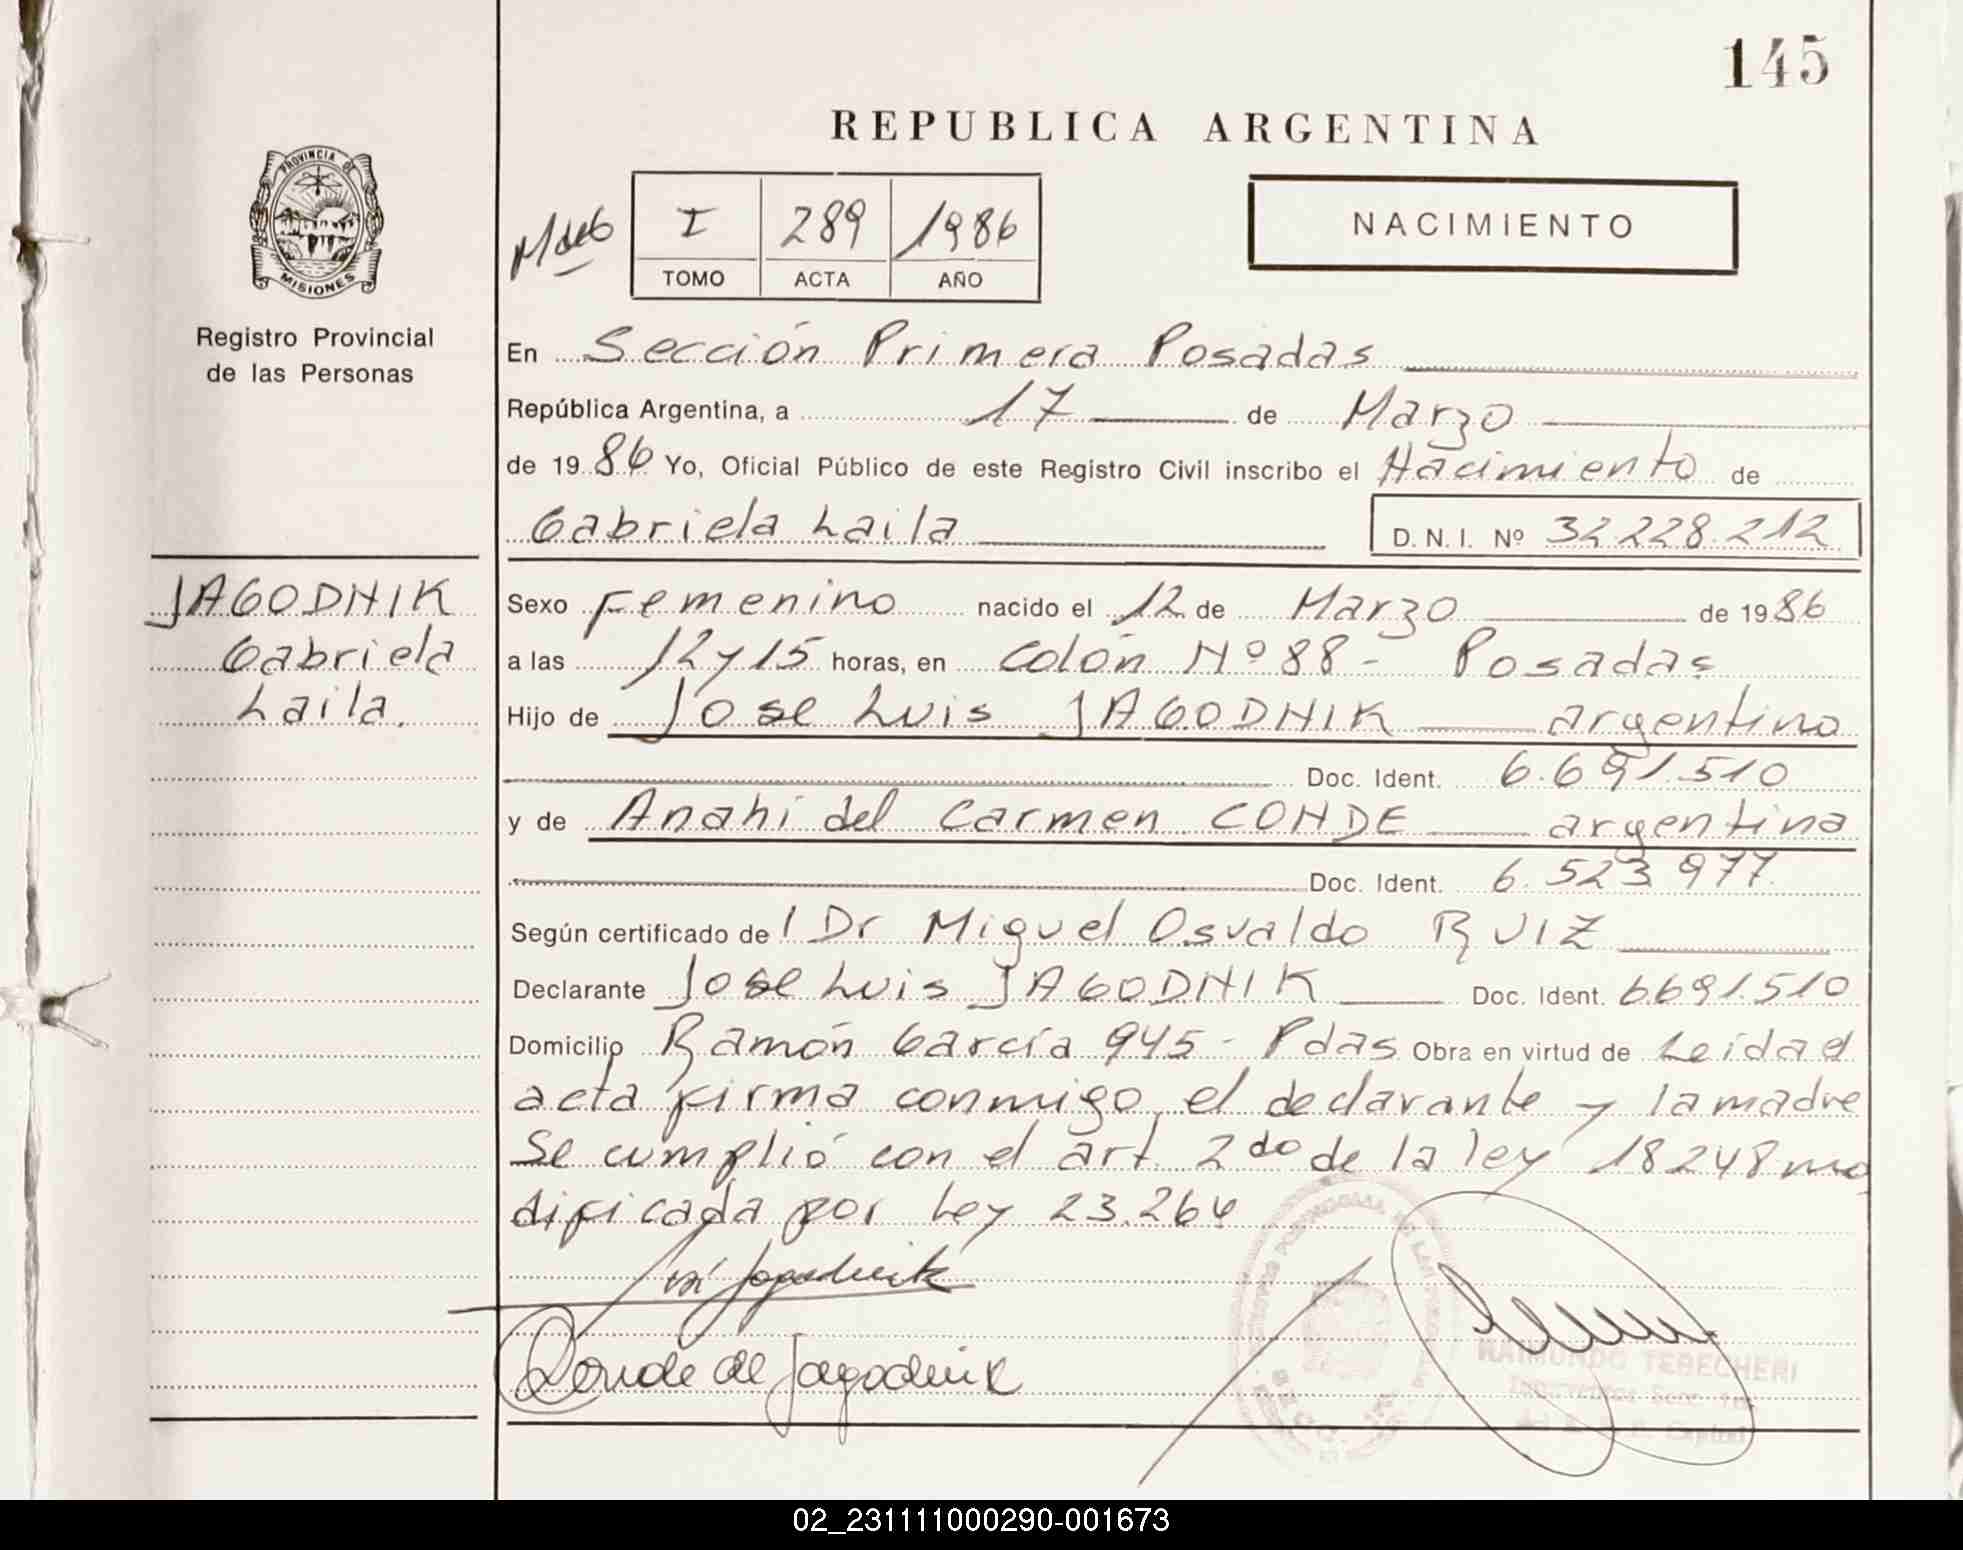 145
REPUBLICA ARGENTINA
PROVINCIA DE
MISIONES
Registro Provincial
de las Personas
I 289 1986
TOMO ACTA AÑO
NACIMIENTO
En Sección Primera Posadas
República Argentina, a 17 de Marzo
de 1986 Yo, Oficial Público de este Registro Civil inscribo el Nacimiento de
Gabriela Laila D.N.I. Nº 32.228.212
JAGODNIK
Gabriela
Laila.
Sexo Femenino nacido el 12 de Marzo de 1986
a las 12 y 15 horas, en Colón Nº 88 - Posadas
Hijo de Jose Luis JAGODNIK argentino
Doc. Ident. 6.691.510
y de Anahí del Carmen CONDE argentina
Doc. Ident. 6.523.977
Según certificado del Dr Miguel Osvaldo RUIZ
Declarante Jose Luis JAGODNIK Doc. Ident. 6691.510
Domicilio Ramón García 945 - Pdas Obra en virtud de Leída el
acta firma conmigo, el declarante y la madre
Se cumplió con el art. 2do de la ley 18248 mo
dificada por Ley 23.264
Jagodnik
Conde de Jagodnik
RAIMUNDO TEBECHERI
02_231111000290-001673